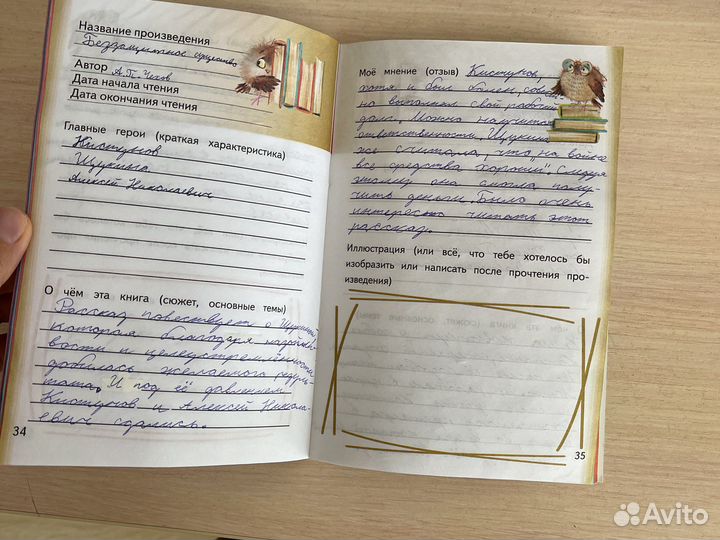 Название произведения
Беззащитное существо
Автор А.П. Чехов
Дата начала чтения
Дата окончания чтения
Главные герои (краткая характеристика)
Кистунов
Щукина
Алексей Николаевич
О чём эта книга (сюжет, основные темы)
Рассказ повествует о Щукиной,
которая благодаря настойчи-
вости и целеустремлённости
добилась желаемого резуль-
тата. И под её давлением
Кистунов и Алексей Никола-
евич сдались.
34
Моё мнение (отзыв) Кистунов,
хотя и был болен,
но выполнял свой рабочий
долг. Можно научится
ответственности. Щукина
же считала, что "на войне
все средства хороши". Следуя
этому она смогла полу-
чить деньги. Было очень
интересно читать этот
рассказ.
Иллюстрация (или всё, что тебе хотелось бы
изобразить или написать после прочтения про-
изведения)
35
Avito